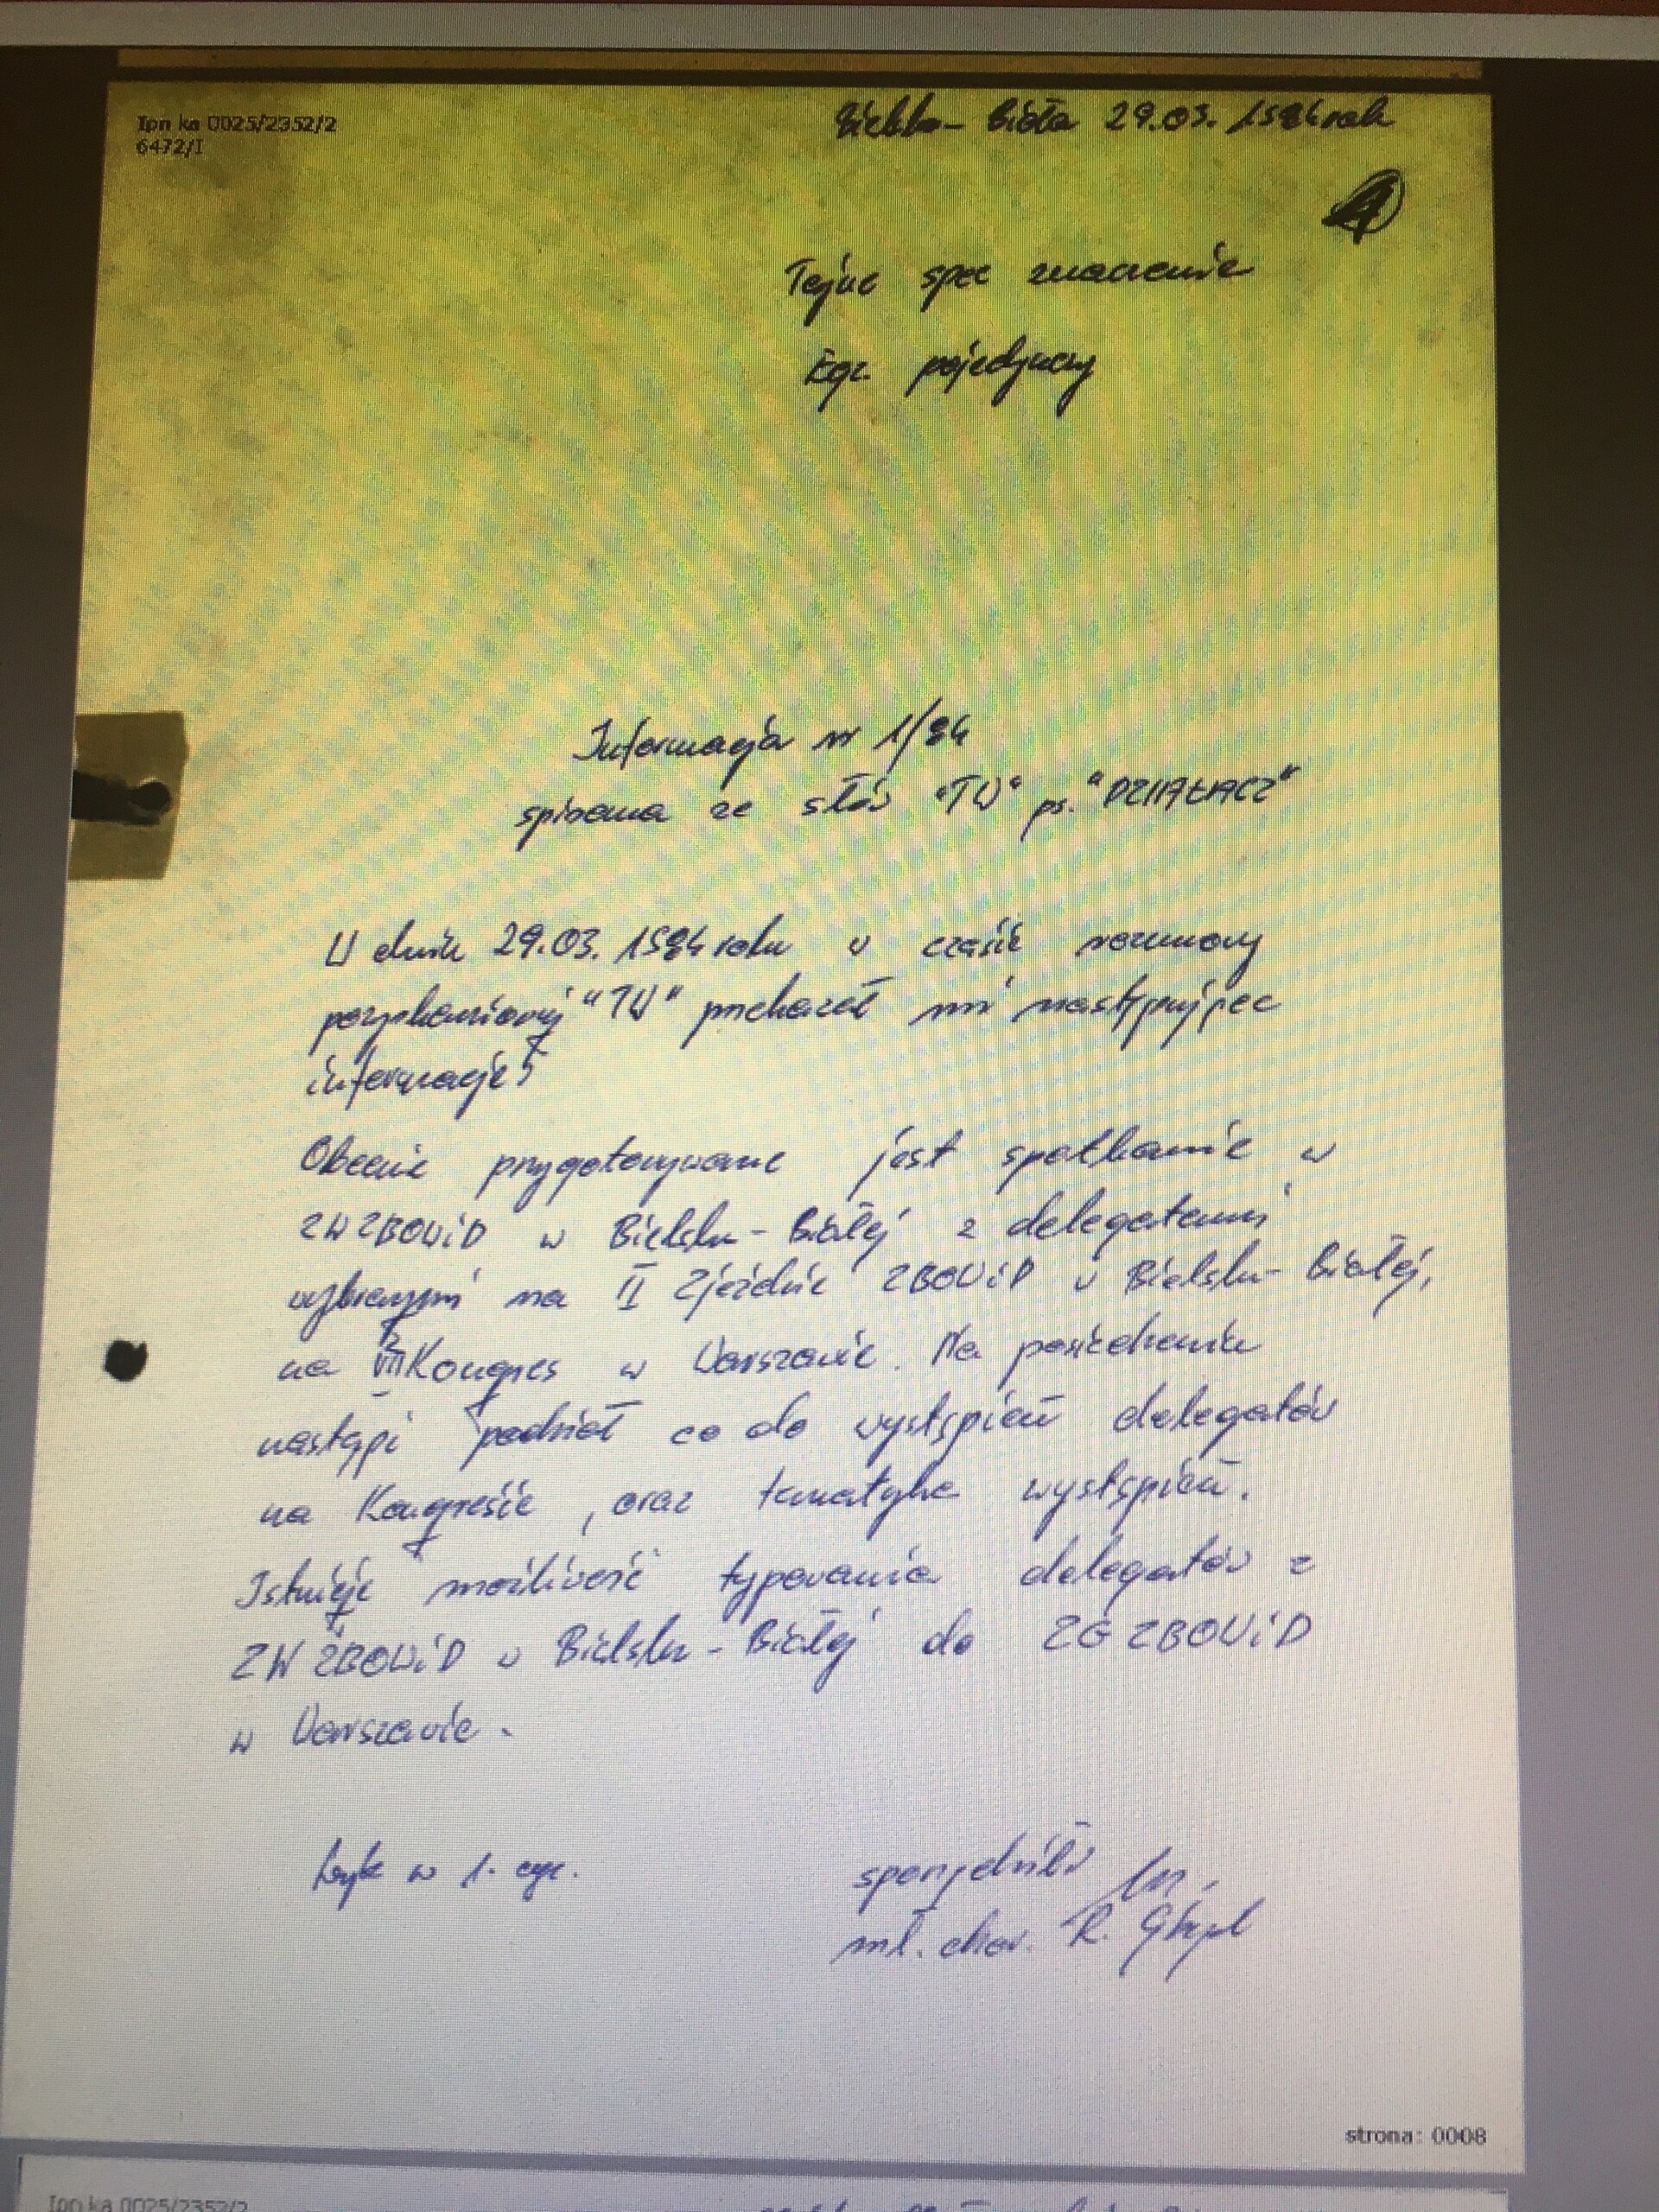 Ipn ka 0025/2352/2
6472/I
Bielsko-Biała 29.03.1984 rok
Tajne spec znaczenie
Egz. pojedynczy
Informacja nr 1/84
spisana ze słów "TW" ps. "DZIAŁACZ"
W dniu 29.03.1984 roku w czasie rozmowy
pozyskaniowej "TW" przekazał mi następujące
informacje:
Obecnie przygotowywane jest spotkanie w
ZW ZBOWiD w Bielsku-Białej z delegatami
wybranymi na II Zjeździe ZBOWiD w Bielsku-Białej,
na VII Kongres w Warszawie. Na posiedzeniu
nastąpi podział co do wystąpień delegatów
na Kongresie, oraz tematyka wystąpień.
Istnieje możliwość typowania delegatów z
ZW ZBOWiD w Bielsku-Białej do ZG ZBOWiD
w Warszawie.
w 1. egz.
sporządził
mł. chor. R.
strona: 0008
Ipn ka 0025/2352/2